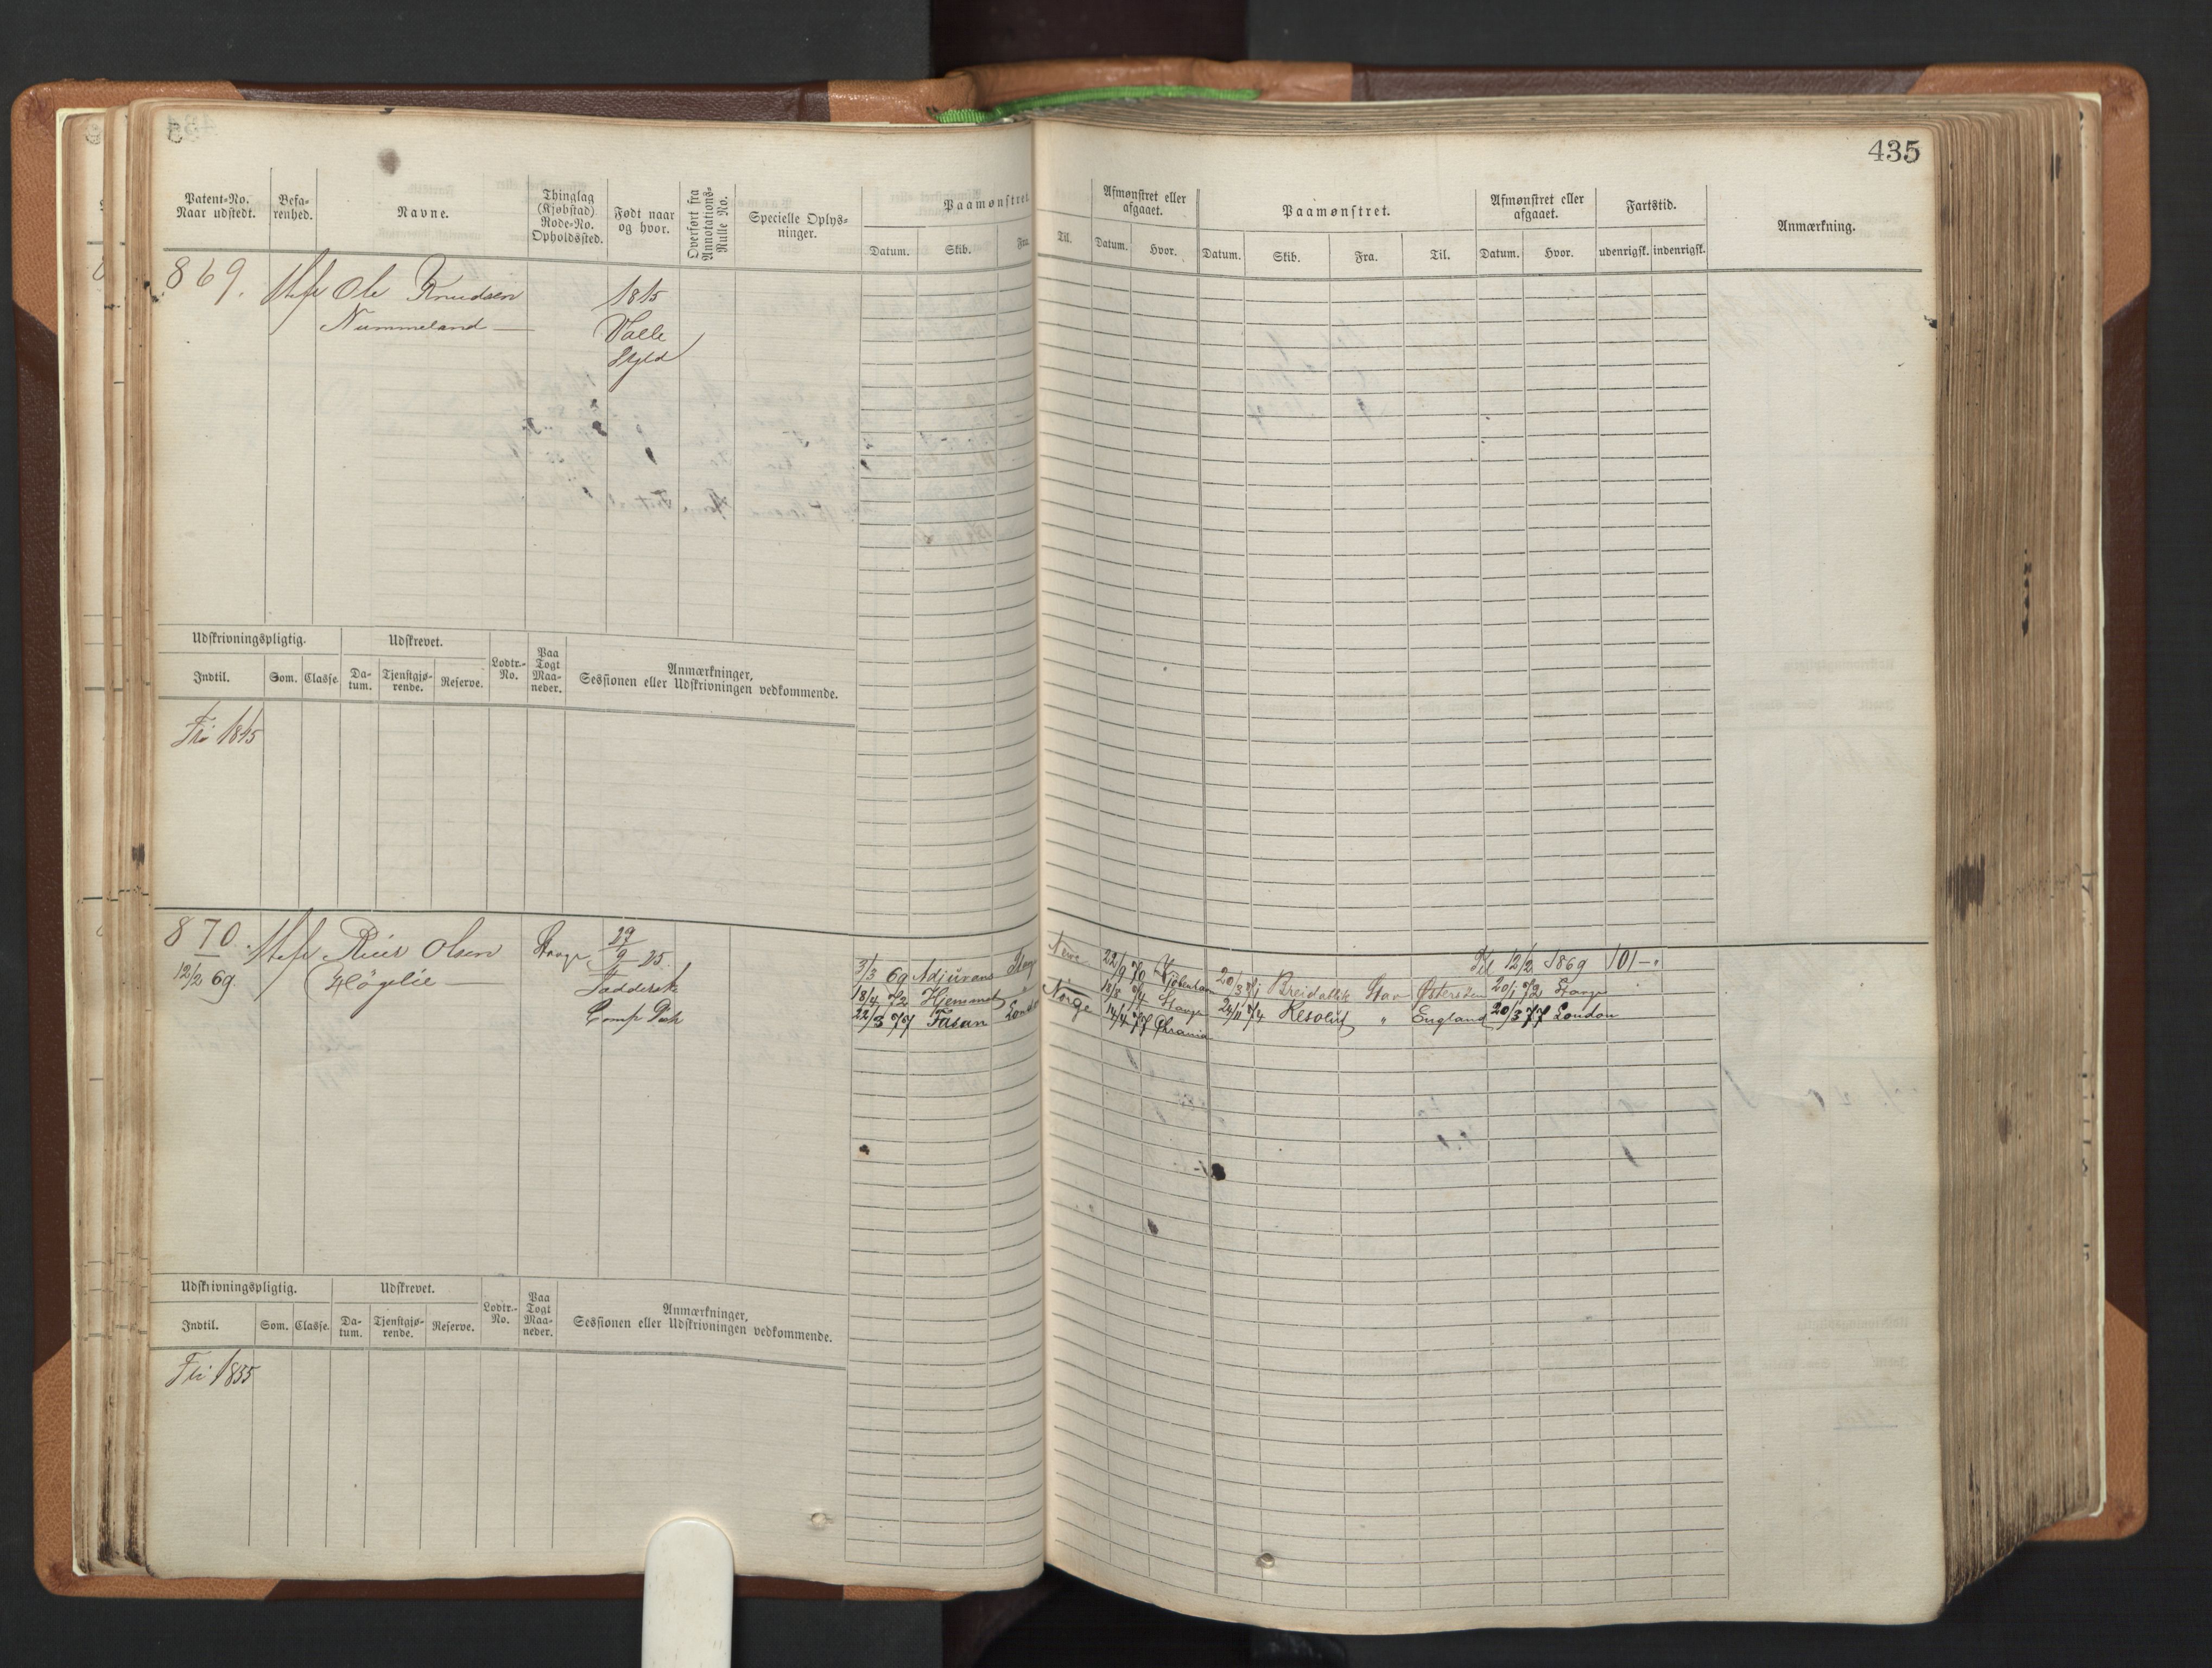 435
Patent-No.
Naar udstedt.
Befa-
renhed.
Navne.
Thinglag
(Kjøbstad)
Rode-No.
Opholdssted.
Født naar
og hvor.
Overført fra
Annotations-
Rulle No.
Specielle Oplys-
ninger.
Paamønstret
Datum.
Skib.
Fra.
Til.
Afmønstret eller
afgaaet.
Datum.
Hvor.
Paamønstret.
Datum.
Skib.
Fra.
Til.
Afmønstret eller
afgaaet.
Datum.
Hvor.
Fartstid.
udenrigsk.
indenrigsk.
Anmærkning.
869.
Ole Knudsen
Nummeland
1815
Valle
Udskrivningspligtig.
Udskrevet.
Lodtr.-
No.
Paa
Togt
Maa-
neder.
Anmærkninger,
Sessionen eller Udskrivningen vedkommende.
Indtil.
Som.
Classe
Da-
tum.
Tjenstgjø-
rende.
Reserve.
Fri 1845
870.
12/2 69.
Olsen
Høgelie
29/9 25
3/3 69 Adjurans
22/9 70
Til 12/2 1869 101
18/4 72 Hjemmet
Norge 18/8 74 Stange
Stav Østersøen 20/1 72 Stange
22/3 77 Fasan London
14/4 77 Chrania
24/11 74 Resolut " England 20/3 77 London
Udskrivningspligtig.
Udskrevet.
Lodtr.-
No.
Paa
Togt
Maa-
neder.
Anmærkninger,
Sessionen eller Udskrivningen vedkommende.
Indtil.
Som.
Classe.
Da-
tum.
Tjenstgjø-
rende.
Reserve.
Fri 1855